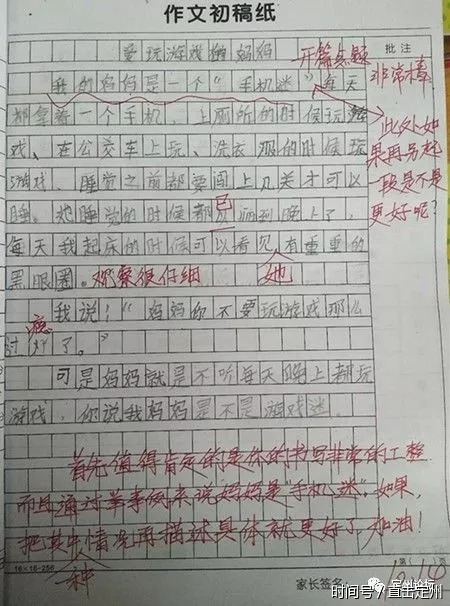 作文初稿纸
批注
爱玩游戏的妈妈
开篇点题
非常棒
我的妈妈是一个“手机迷”每天
都拿着一个手机，上厕所的时候玩游
戏、在公交车上玩、洗衣服的时候玩
游戏，睡觉之前都要闯上几关才可以
睡。她睡觉的时候都已到晚上了，
每天我起床的时候可以看见她有重重的
黑眼圈。观察很仔细
此处如
果再另起
一段是不是
更好呢?
我说：“妈妈你不要玩游戏那么
过瘾了。”
可是妈妈就是不听每天晚上都玩
游戏，你说我妈妈是不是游戏迷.
首先值得肯定的是你的书写非常的工整
而且通过举事例来说妈妈是“手机迷”，如果，
把其中一种情况再描述具体就更好了 加油!
16×16=256
家长签名
第
12.10
定州论坛
时间号/直击定州